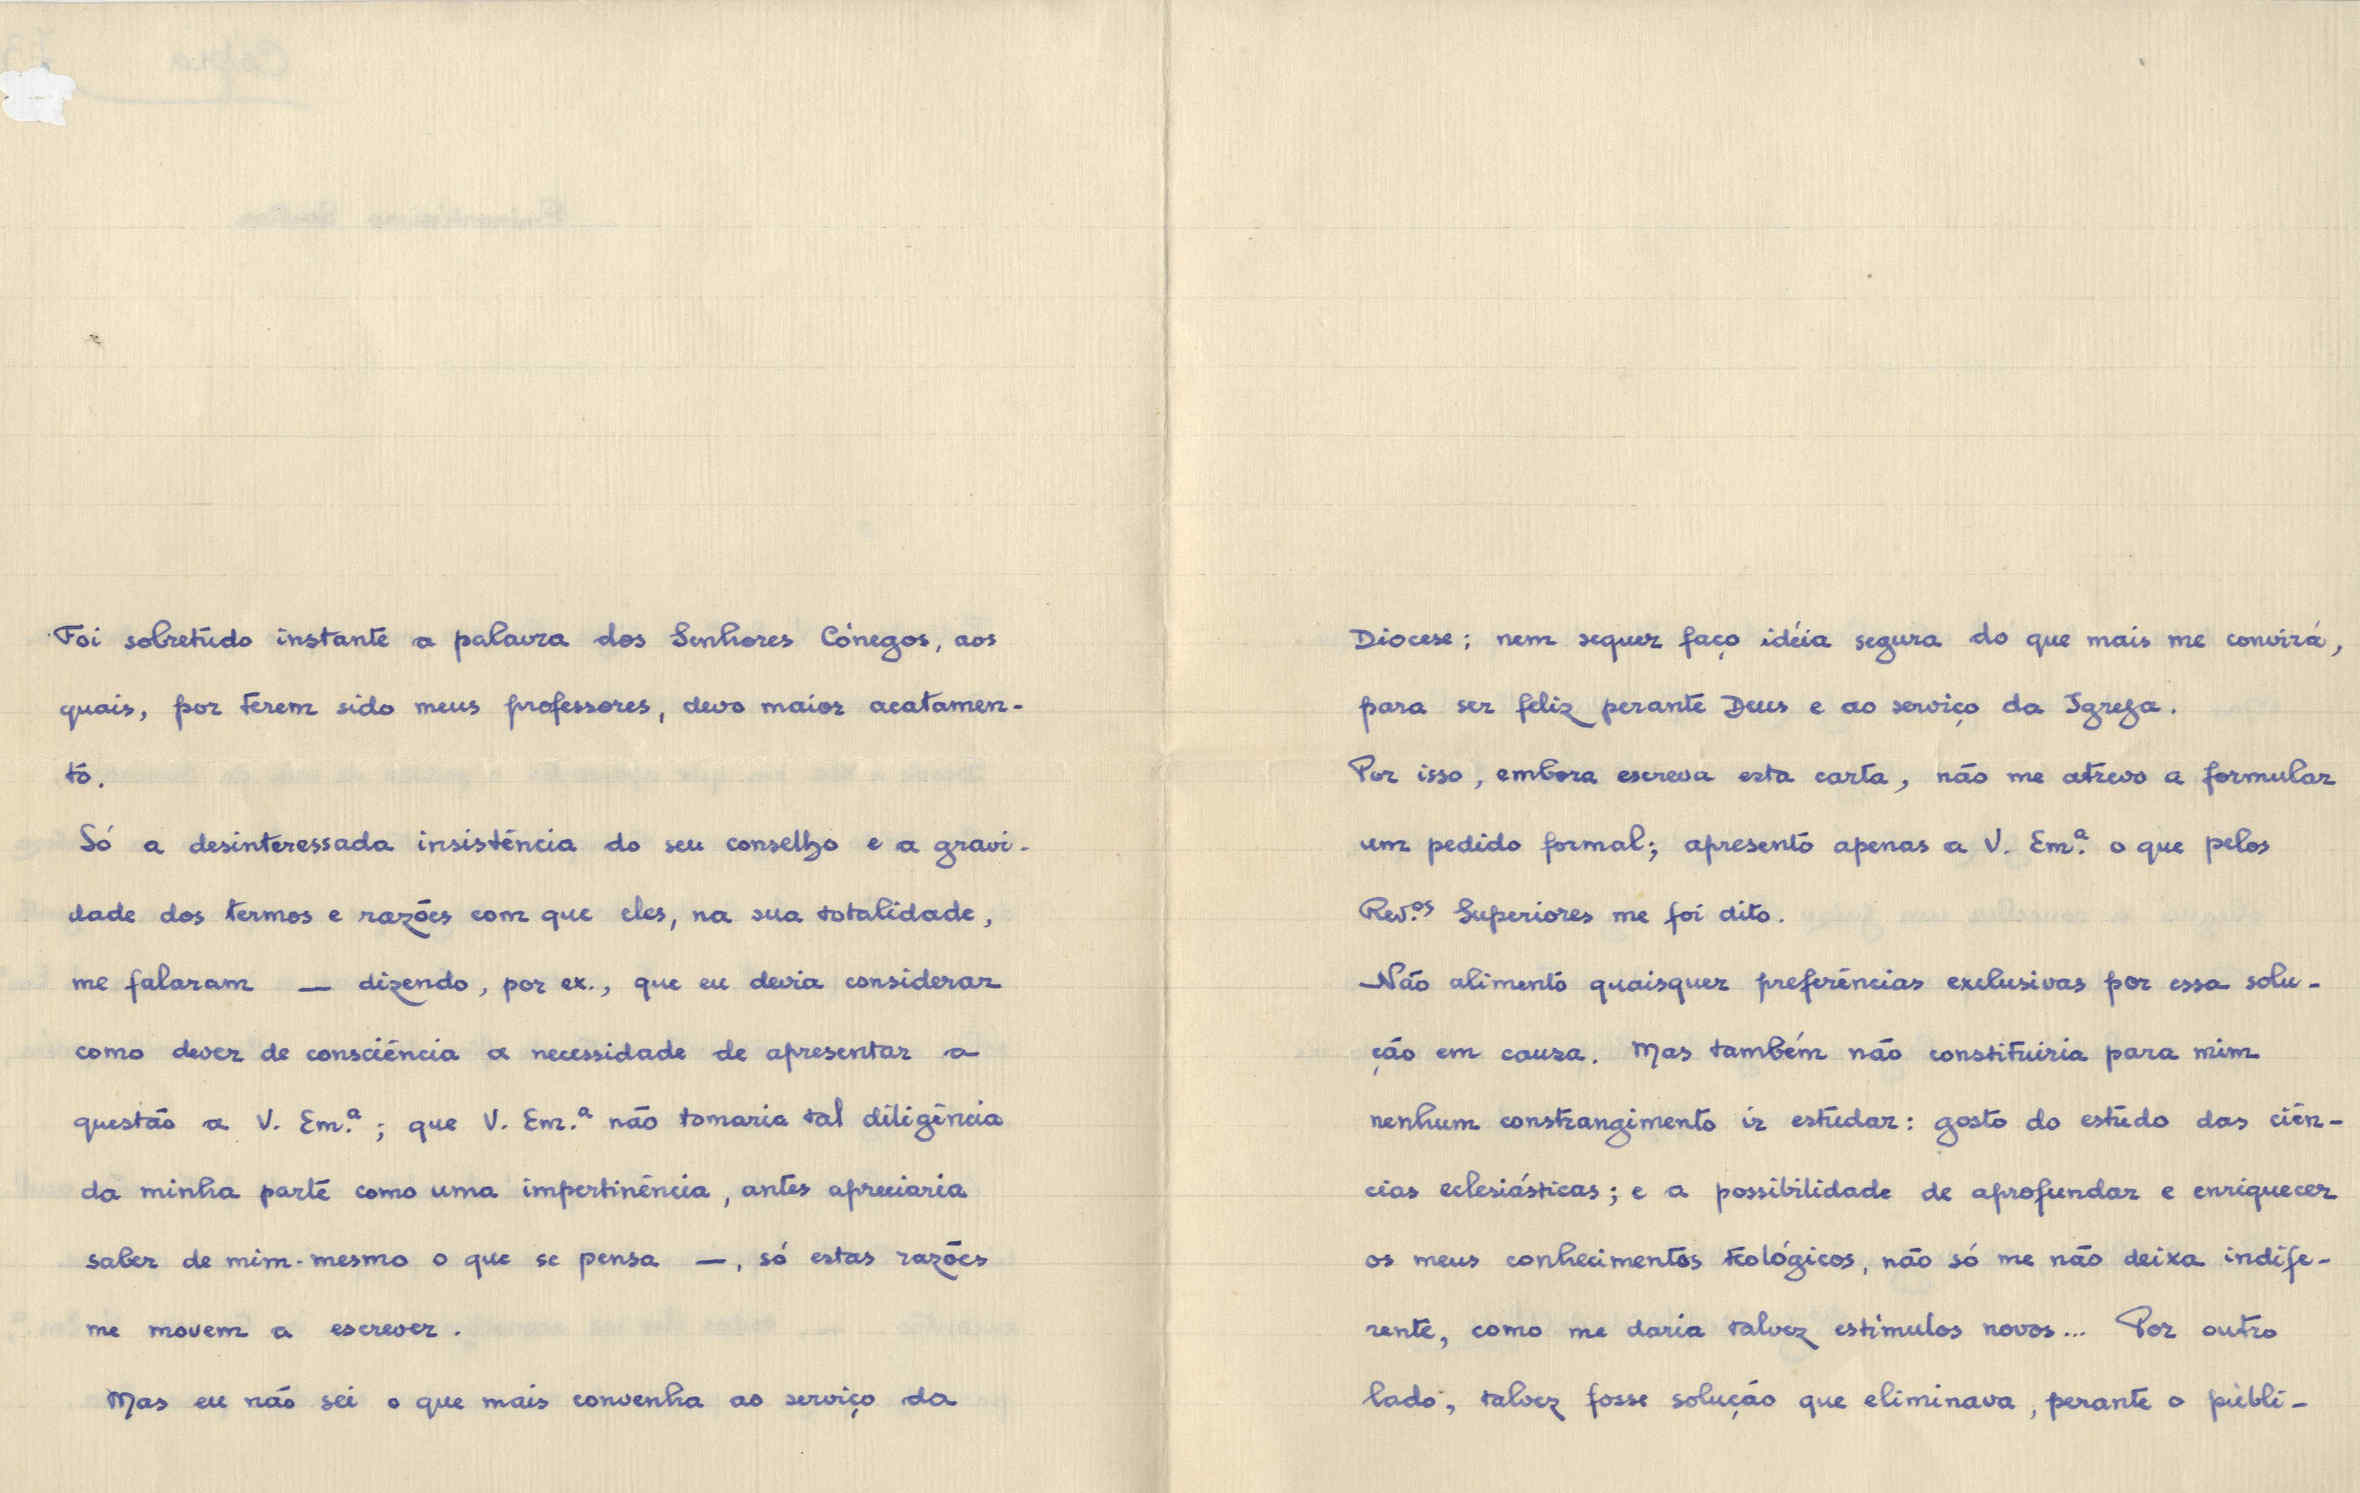 Foi sobretudo instante a palavra dos Senhores Cónegos, aos
quais, por terem sido meus professores, devo maior acatamen-
to.
Só a desinteressada insistência do seu conselho e a gravi-
dade dos termos e razões com que eles, na sua totalidade,
me falaram — dizendo, por ex., que eu devia considerar
como dever de consciência a necessidade de apresentar a
questão a V. Em.ª; que V. Em.ª não tomaria tal diligência
da minha parte como uma impertinência, antes apreciaria
saber de mim-mesmo o que se pensa —, só estas razões
me movem a escrever.
Mas eu não sei o que mais convenha ao serviço da
Diocese; nem sequer faço idéia segura do que mais me convirá,
para ser feliz perante Deus e ao serviço da Igreja.
Por isso, embora escreva esta carta, não me atrevo a formular
um pedido formal; apresento apenas a V. Em.ª o que pelos
Rev.os Superiores me foi dito.
Não alimento quaisquer preferências exclusivas por essa solu-
ção em causa. Mas também não constituiria para mim
nenhum constrangimento ir estudar: gosto do estudo das ciên-
cias eclesiásticas; e a possibilidade de aprofundar e enriquecer
os meus conhecimentos teológicos, não só me não deixa indife-
rente, como me daria talvez estímulos novos... Por outro
lado, talvez fosse solução que eliminava, perante o públi-